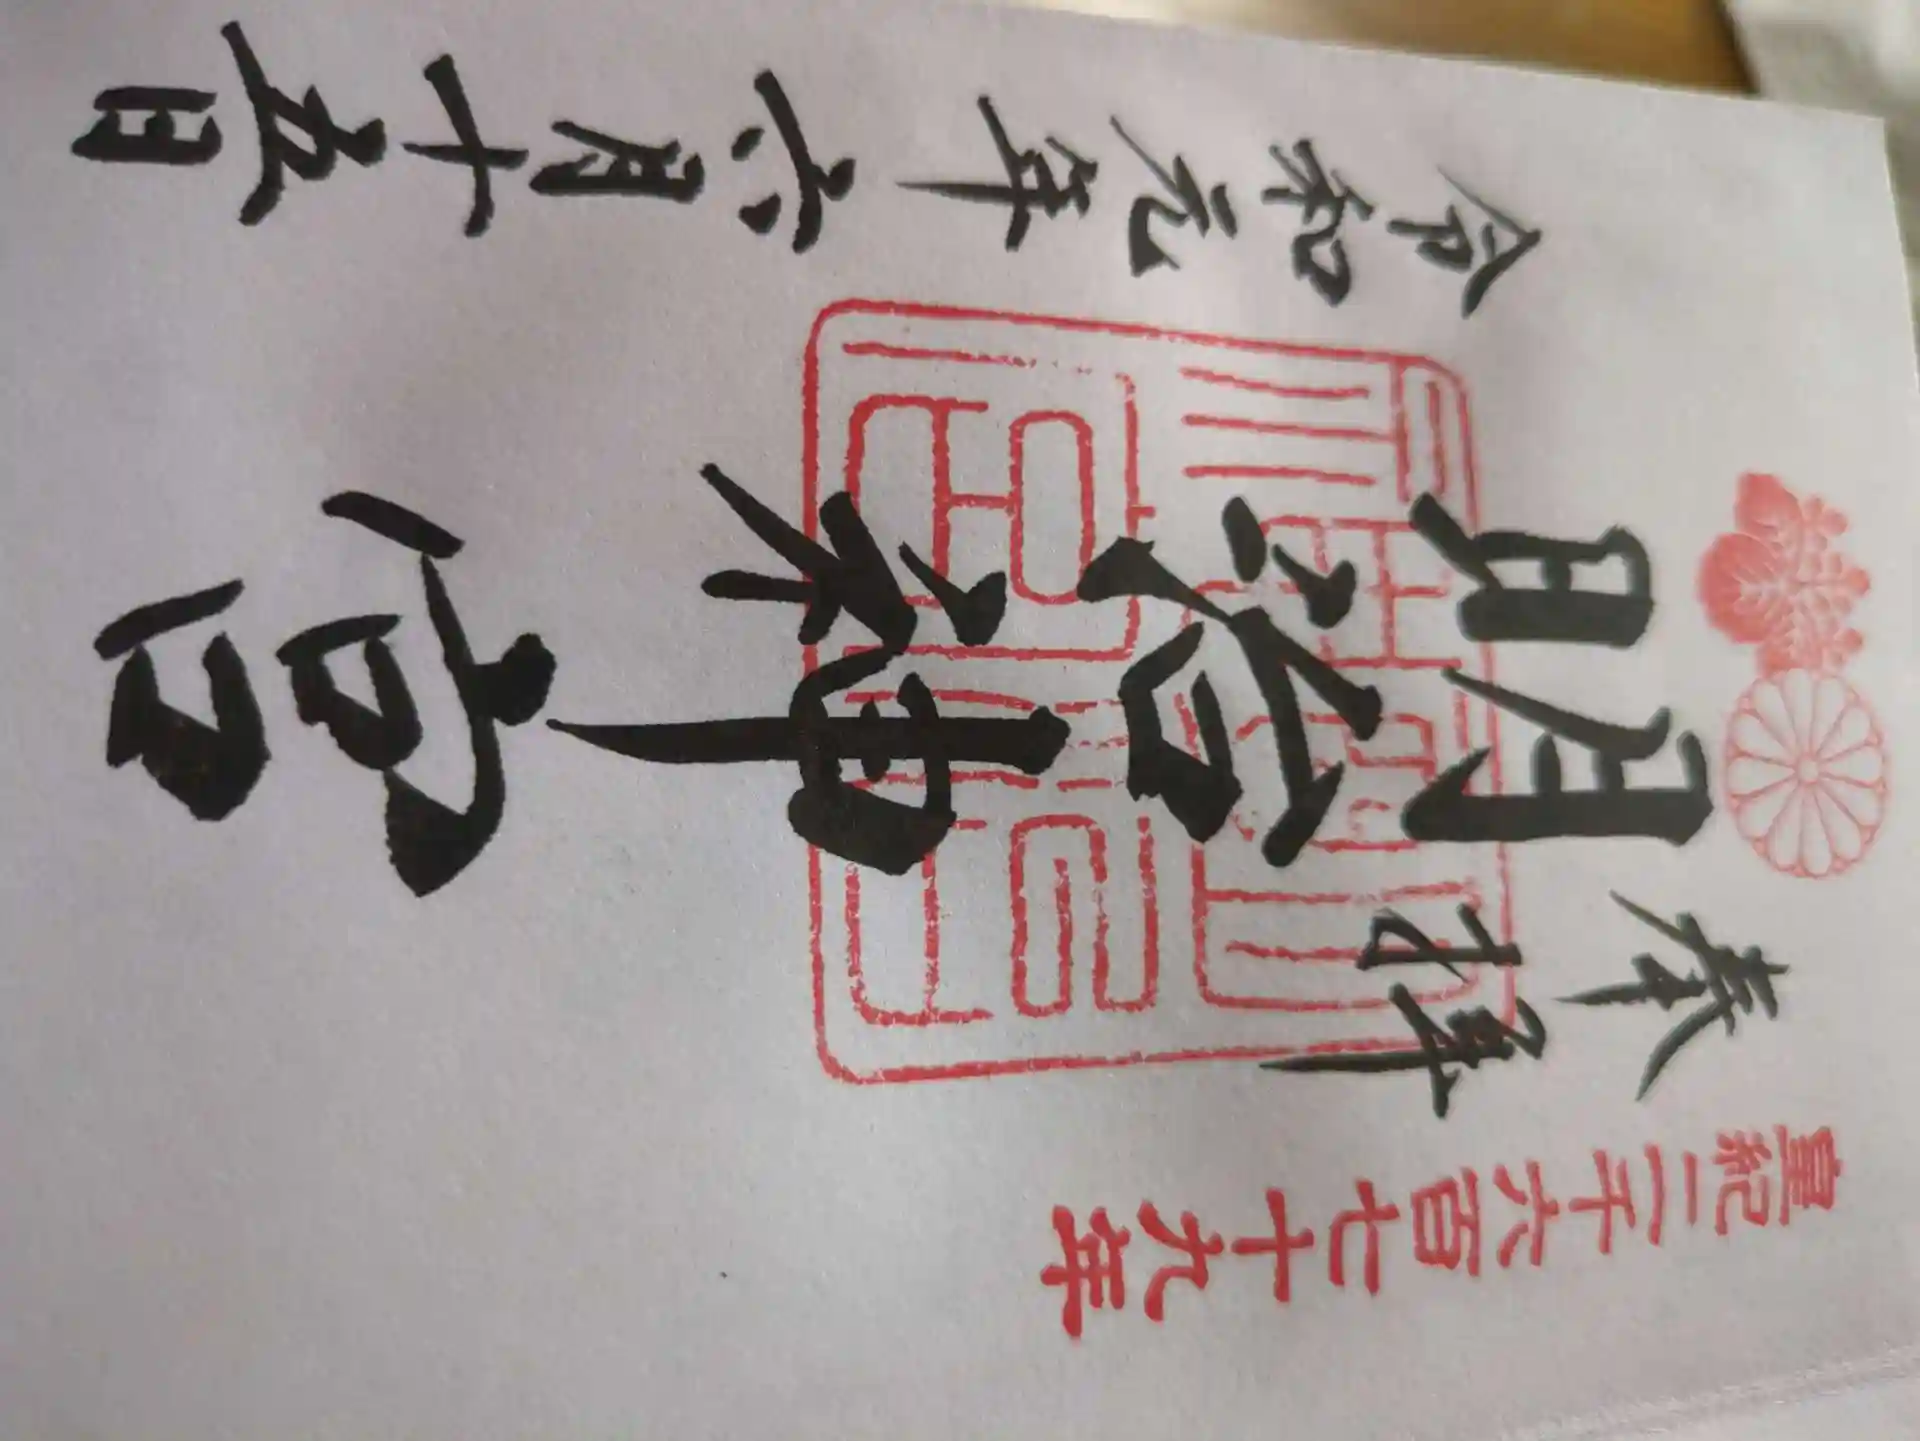 皇紀二千六百七十九年
奉拝
明治神宮
令和元年六月十五日
明治神宮